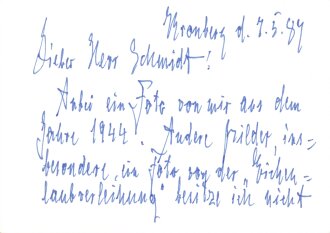 Kronberg d. 7.5.89
Lieber Herr Schmidt!
Anbei ein Foto von mir aus dem
Jahre 1944. Andere Bilder, ins=
besondere ein Foto von der "Eichen=
laubverleihung" besitze ich nicht